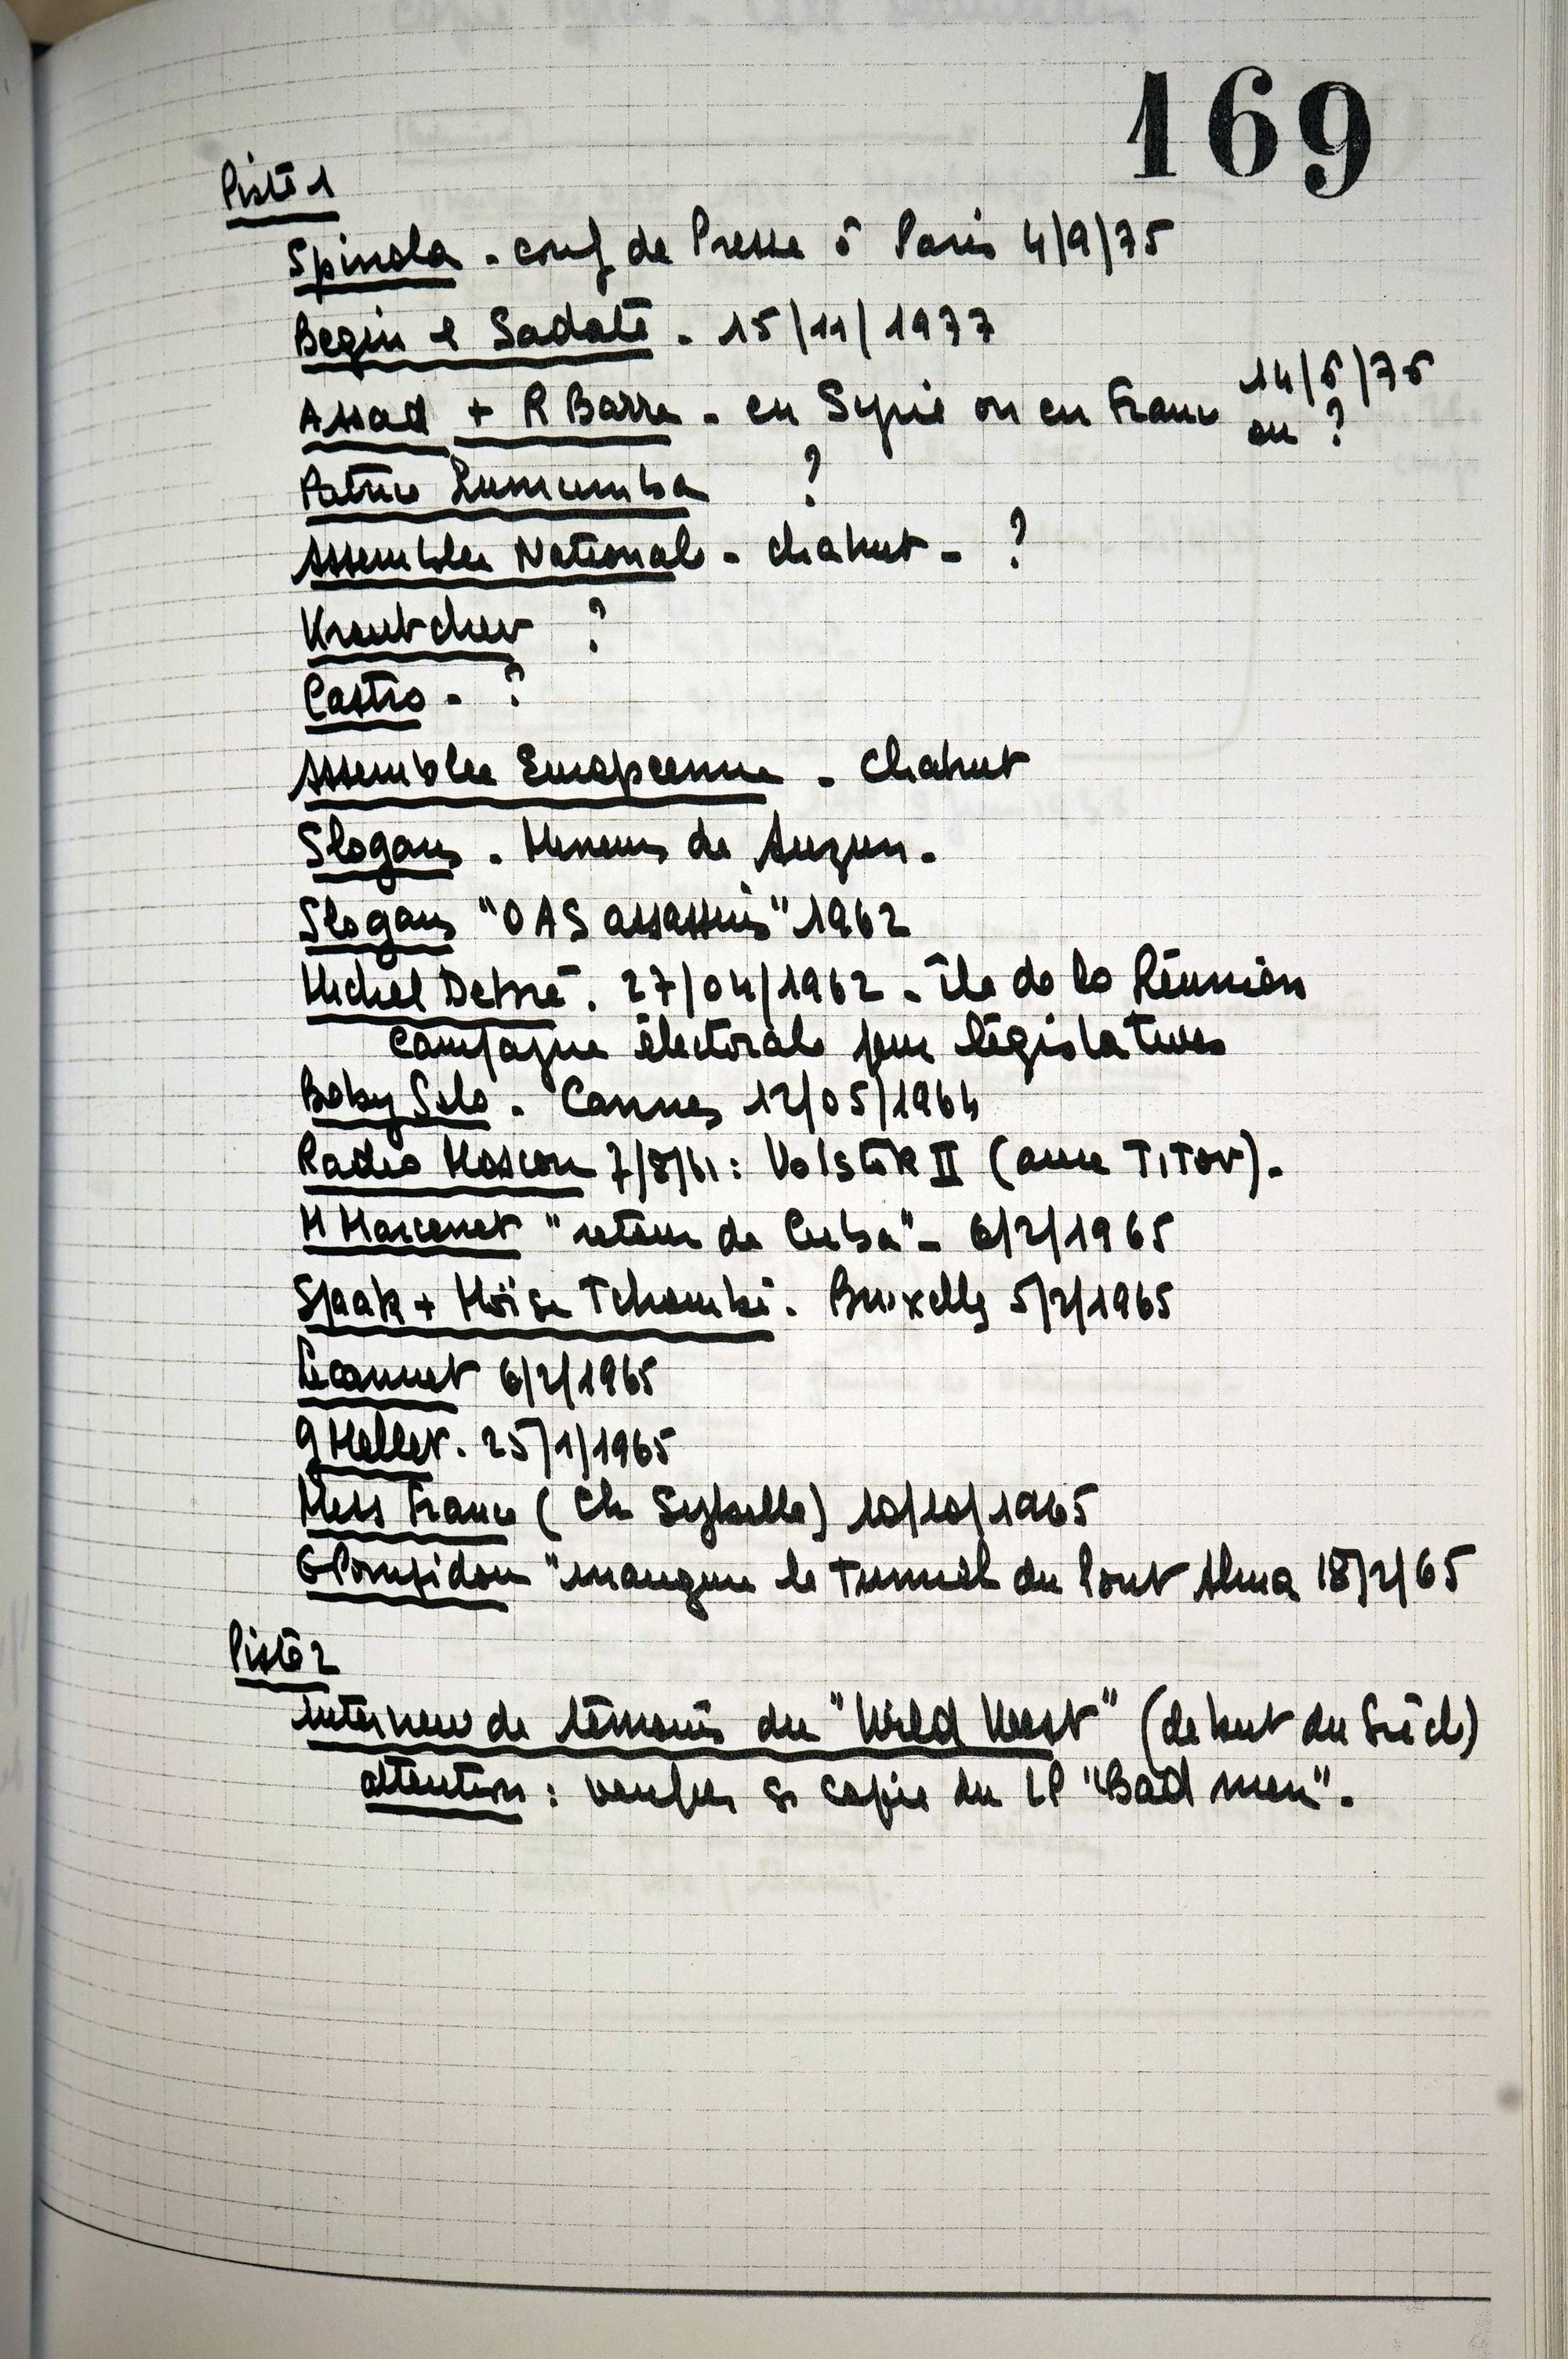 169
Piste 1
Spinola - conf de Presse à Paris 4/9/75
Begin e Sadate - 15/11/1977
14/6/76
Assad + R Barre - en Syrie ou en France ou ?
Patrice Lumumba ?
Assemblee National - chahut - ?
Kroutchev ?
Castro - ?
Assemblee Europeenne - Chahut
Slogans - Mineurs de
Slogans "OAS assassins" 1962
Michel Debré. 27/04/1962 - île de la Réunion
Campagne électorale pour législatives
Boby Solo - Cannes 12/05/1964
Radio Moscou 7/8/61: Volstok II (avec TITOV).
M Marcenet "retour de Cuba" - 6/2/1965
Spaak + Moïse Tchombé. Bruxelles 5/2/1965
Lecanuet 6/2/1965
G Mollet. 25/1/1965
Miss France (Ch Sybelle) 10/10/1965
G Pompidou "inaugure le Tunnel du Pont Alma 18/2/65
Piste 2
Interview de témoins du "Wild West" (debut du Siècle)
attention : verifier si copie du LP "Bad men".